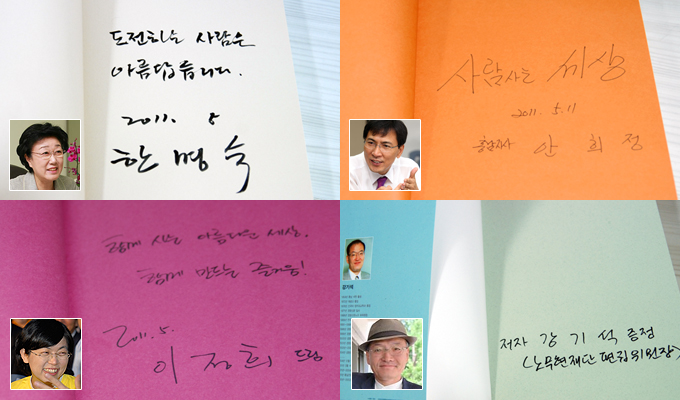 도전하는 사람은
아름답습니다.
2011. 5
한명숙
사람사는 세상
2011. 5. 11
충남지사 안희정
함께 사는 아름다운 세상,
함께 만드는 즐거움!
2011. 5.
이정희 드림
강기석
저자 강기석 증정
(노무현재단 편집위원장)